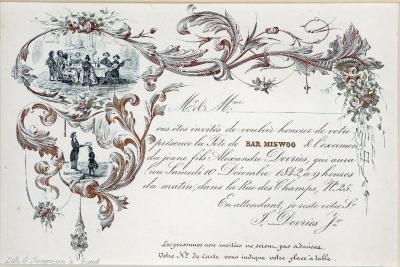 M.r & M.me
Vous êtes invités de vouloir honorer de votre
présence la fête de BAR MISWOO & l'examen
du jeune fils Alexandre Devries, qui aura
lieu Samedi 10 Décembre 1842 à 9 heures
du matin, dans la Rue des Champs, N. 25.
En attendant, je reste votre S.r
J. Devries J.r
Les personnes non invitées ne seront pas admises.
Votre N.o de Carte vous indique votre place à table.
Lith. G. Jacqmain à Gand